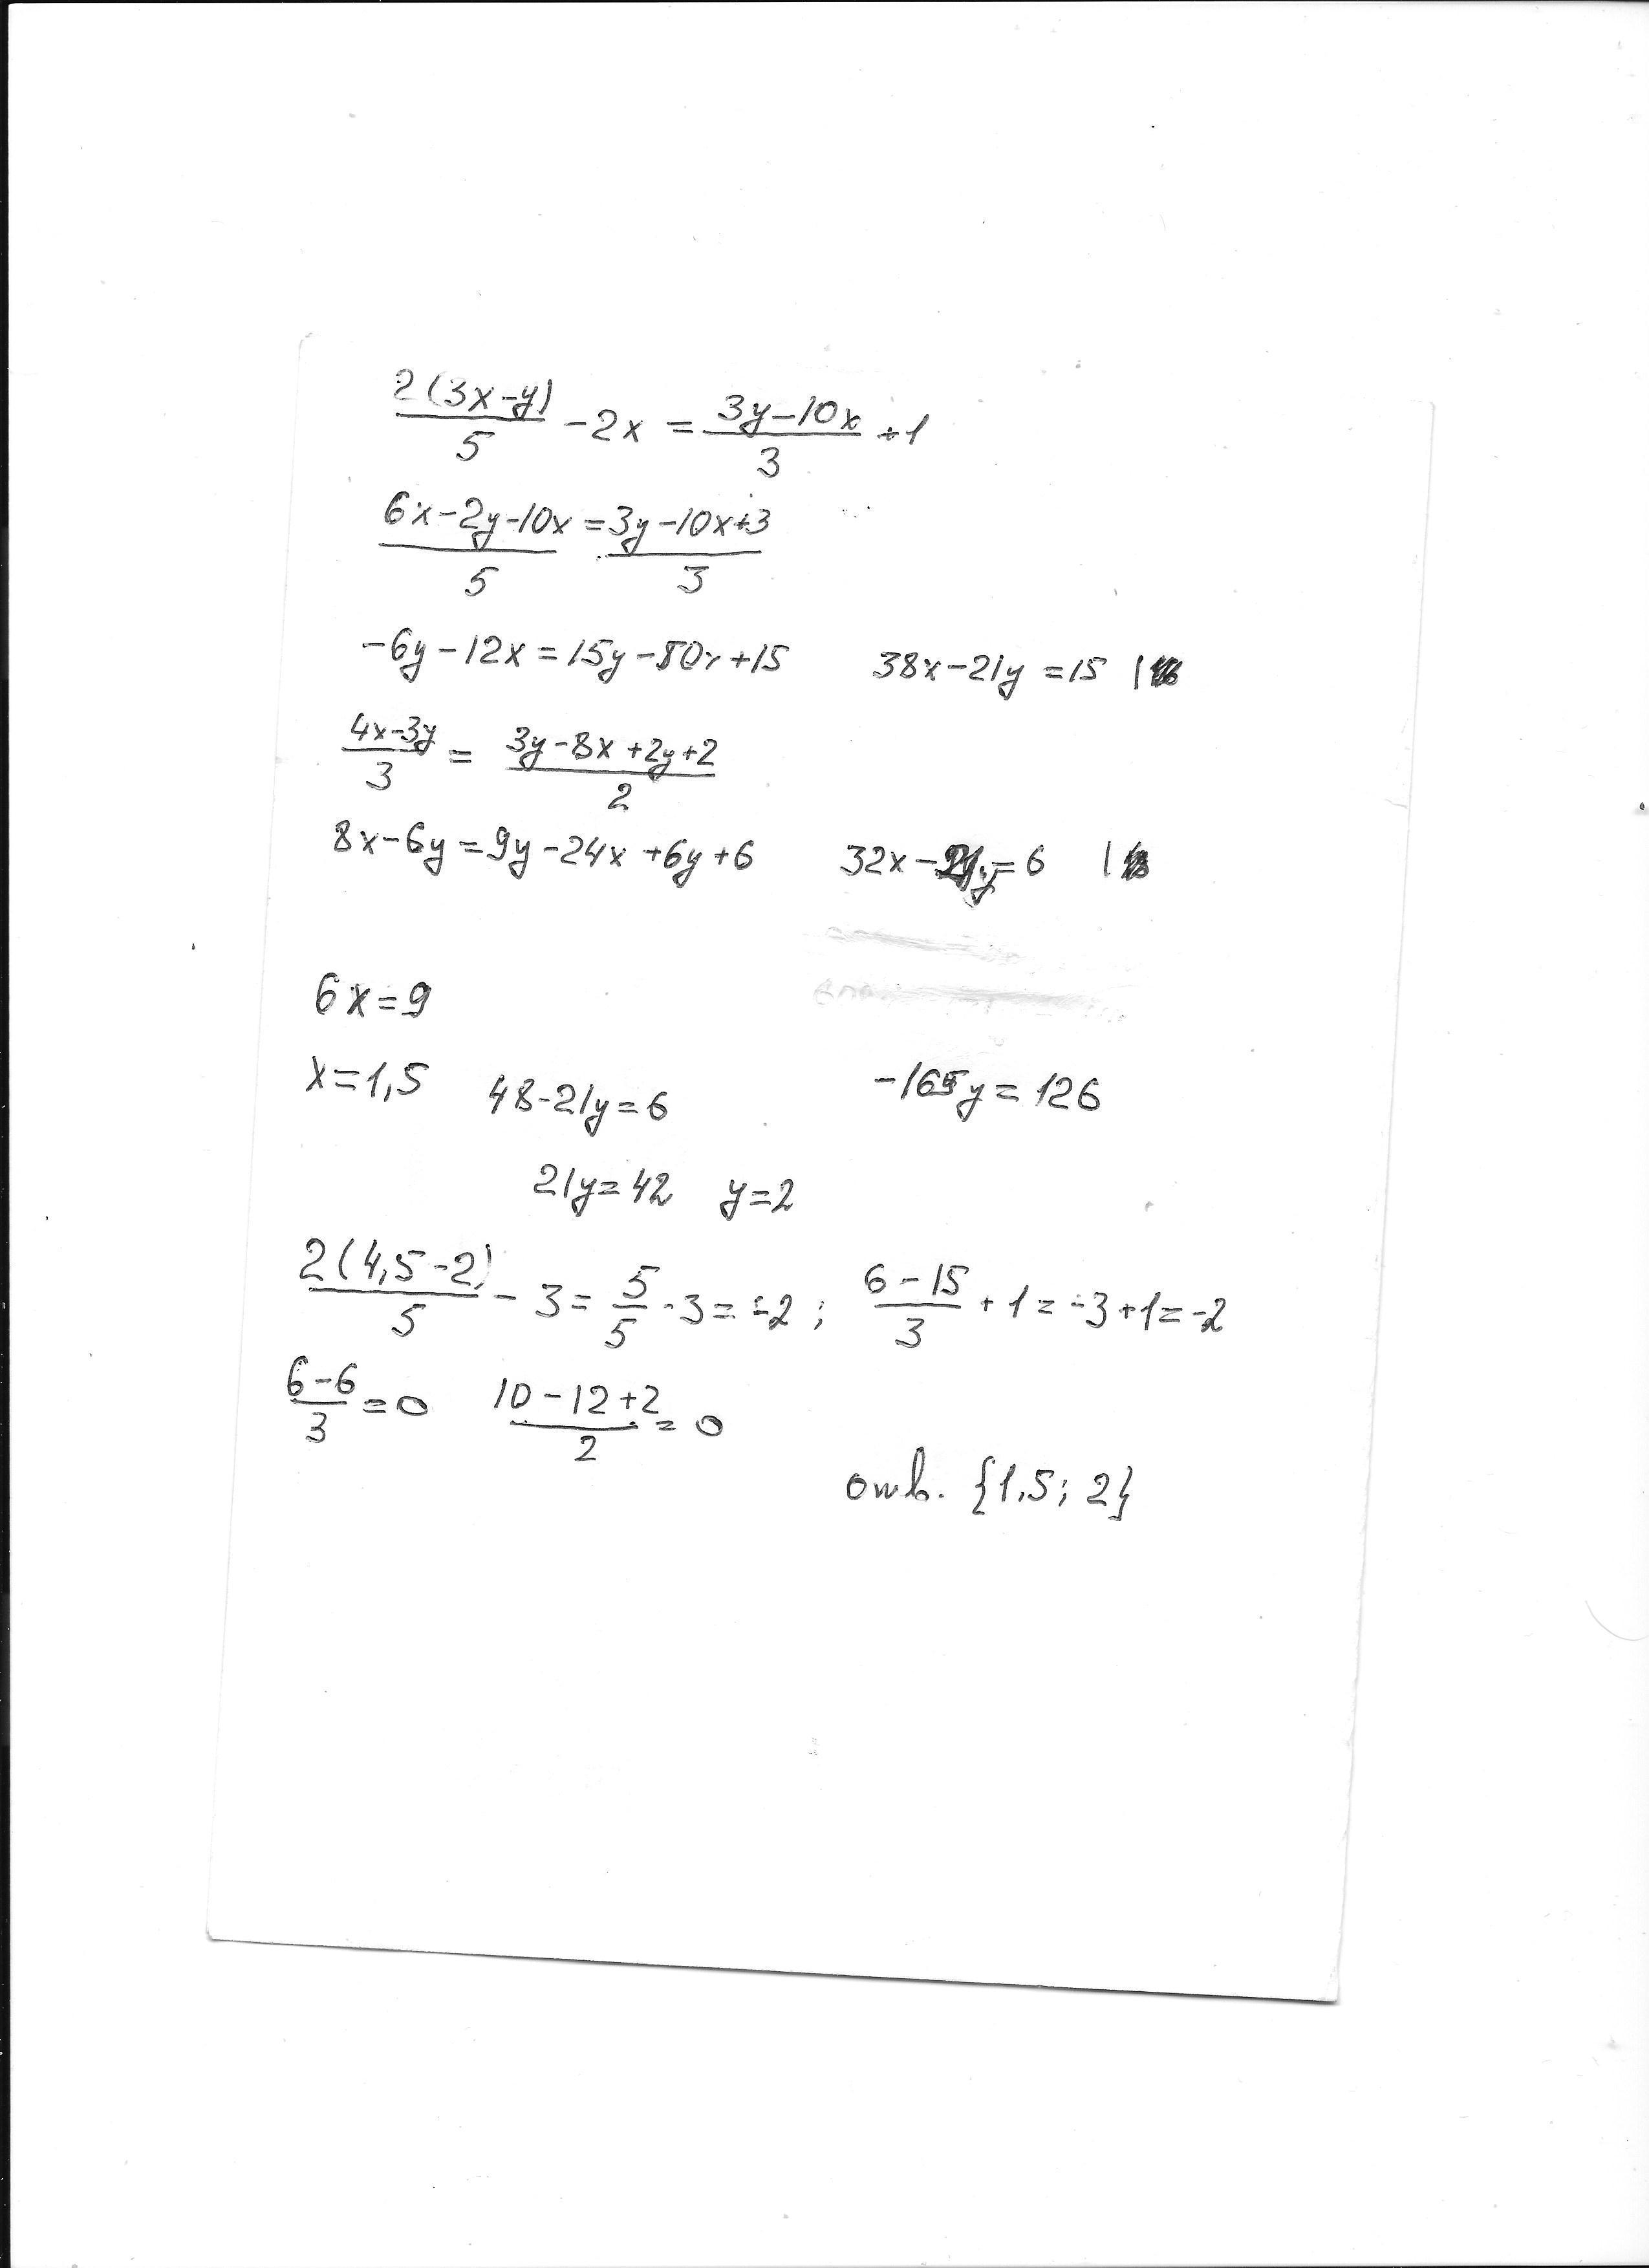 2(3x-y)/5 - 2x = (3y-10x)/3 + 1
(6x-2y-10x)/5 = (3y-10x+3)/3
-6y-12x=15y-50x+15 38x-21y=15 |
(4x-3y)/3 = (3y-8x+2y+2)/2
8x-6y=9y-24x+6y+6 32x-21y=6 |
6x=9
x=1,5 48-21y=6 -165y=126
21y=42 y=2
2(4,5-2)/5 - 3 = 5/5 - 3 = -2; (6-15)/3 + 1 = -3+1 = -2
(6-6)/3 = 0 (10-12+2)/2 = 0
отв. {1,5; 2}